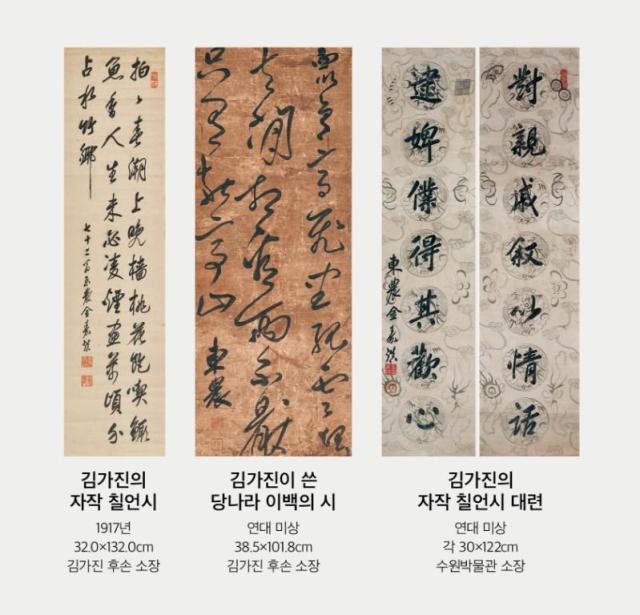 拍〻春潮上晚檣桃花能喫鱖
魚香人生未必凌煙畫萬頃分
占水竹鄉
七十二翁東農金嘉鎮
衆鳥高飛盡孤雲獨
去閒相看兩不厭
只有敬亭山
東農
對親戚叙以情話
逮婢僕得其歡心
東農金嘉鎮
김가진의
자작 칠언시
1917년
32.0×132.0cm
김가진 후손 소장
김가진이 쓴
당나라 이백의 시
연대 미상
38.5×101.8cm
김가진 후손 소장
김가진의
자작 칠언시 대련
연대 미상
각 30×122cm
수원박물관 소장